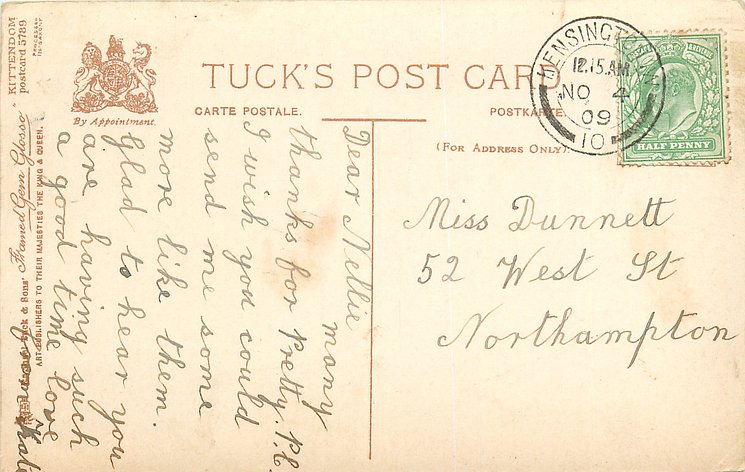 TUCK'S POST CARD
CARTE POSTALE.
POSTKARTE
(FOR ADDRESS ONLY)
By Appointment.
KENSINGTON
12.15 AM
NO 4
09
10
HALF PENNY
Miss Dunnett
52 West St
Northampton
Dear Nellie
many
thanks for Pretty. P.C.
I wish you could
send me some
more like them.
Glad to hear you
are having such
a good time love
from Kate
& Sons' "Framed Gem Glosso" KITTENDOM
postcard 5789
ART PUBLISHERS TO THEIR MAJESTIES THE KING & QUEEN.